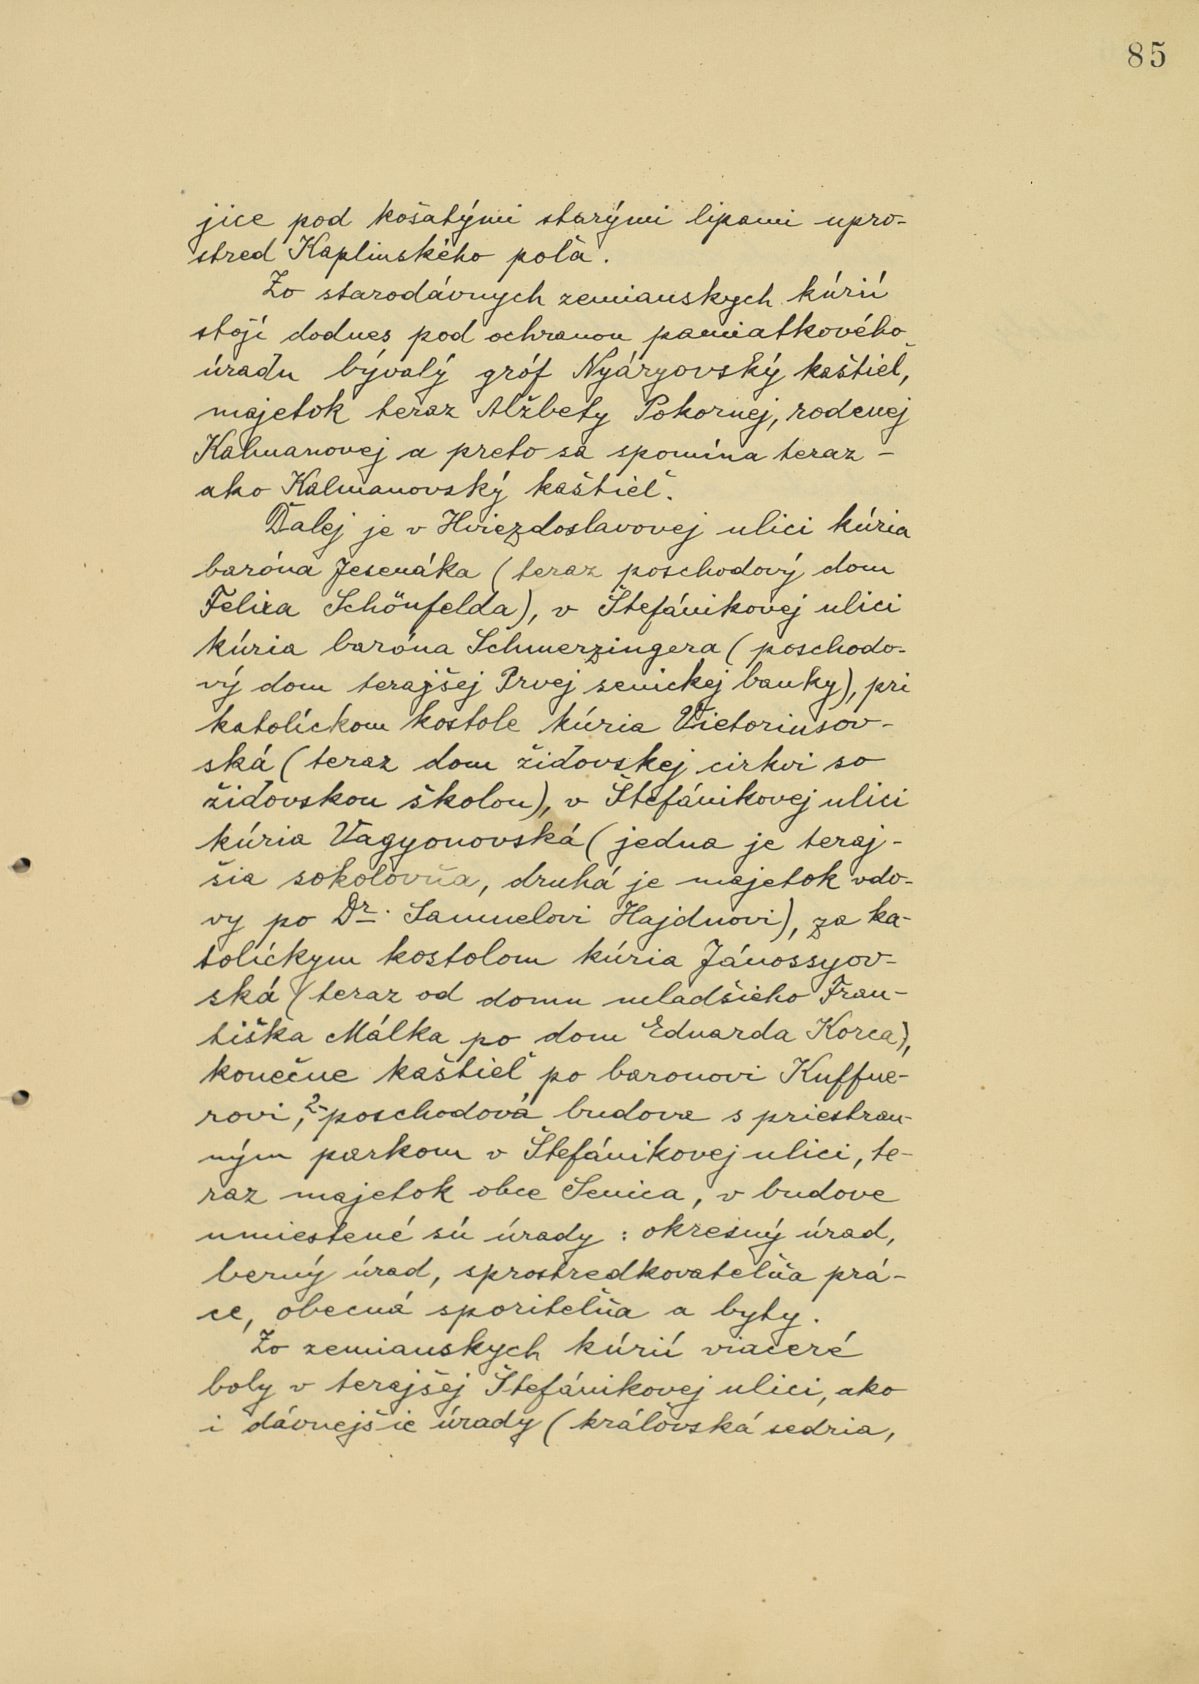 85
jice pod košatými starými lipami upro-
stred Kaplinského poľa.
Zo starodávnych zemianskych kúrií
stojí dodnes pod ochranou pamiatkového
úradu bývalý gróf Nyáryovský kaštieľ,
majetok teraz Alžbety Pokornej, rodenej
Kalmanovej a preto sa spomína teraz -
ako Kalmanovský kaštieľ.
Ďalej je v Hviezdoslavovej ulici kúria
baróna Jesenáka (teraz poschodový dom
Felixa Schönfelda), v Štefánikovej ulici
kúria baróna Schmerzingera (poschodo-
vý dom terajšej Prvej senickej banky), pri
katolíckom kostole kúria Vietoriusov-
ská (teraz dom židovskej cirkvi so
židovskou školou), v Štefánikovej ulici
kúria Vagyonovská (jedna je teraj-
šia sokolovňa, druhá je majetok vdo-
vy po Dr. Samuelovi Hajduovi), za ka-
tolíckym kostolom kúria Jánossyov-
ská (teraz od domu mladšieho Fran-
tiška Málka po dom Eduarda Korca),
konečne kaštieľ po baronovi Kuffne-
rovi, 2-poschodová budova s priestran-
ným parkom v Štefánikovej ulici, te-
raz majetok obce Senica, v budove
umiestené sú úrady: okresný úrad,
berný úrad, sprostredkovateľňa prá-
ce, obecná sporiteľňa a byty.
Zo zemianskych kúrií viaceré
boly v terajšej Štefánikovej ulici, ako
i dávnejšie úrady (kráľovská sedria,